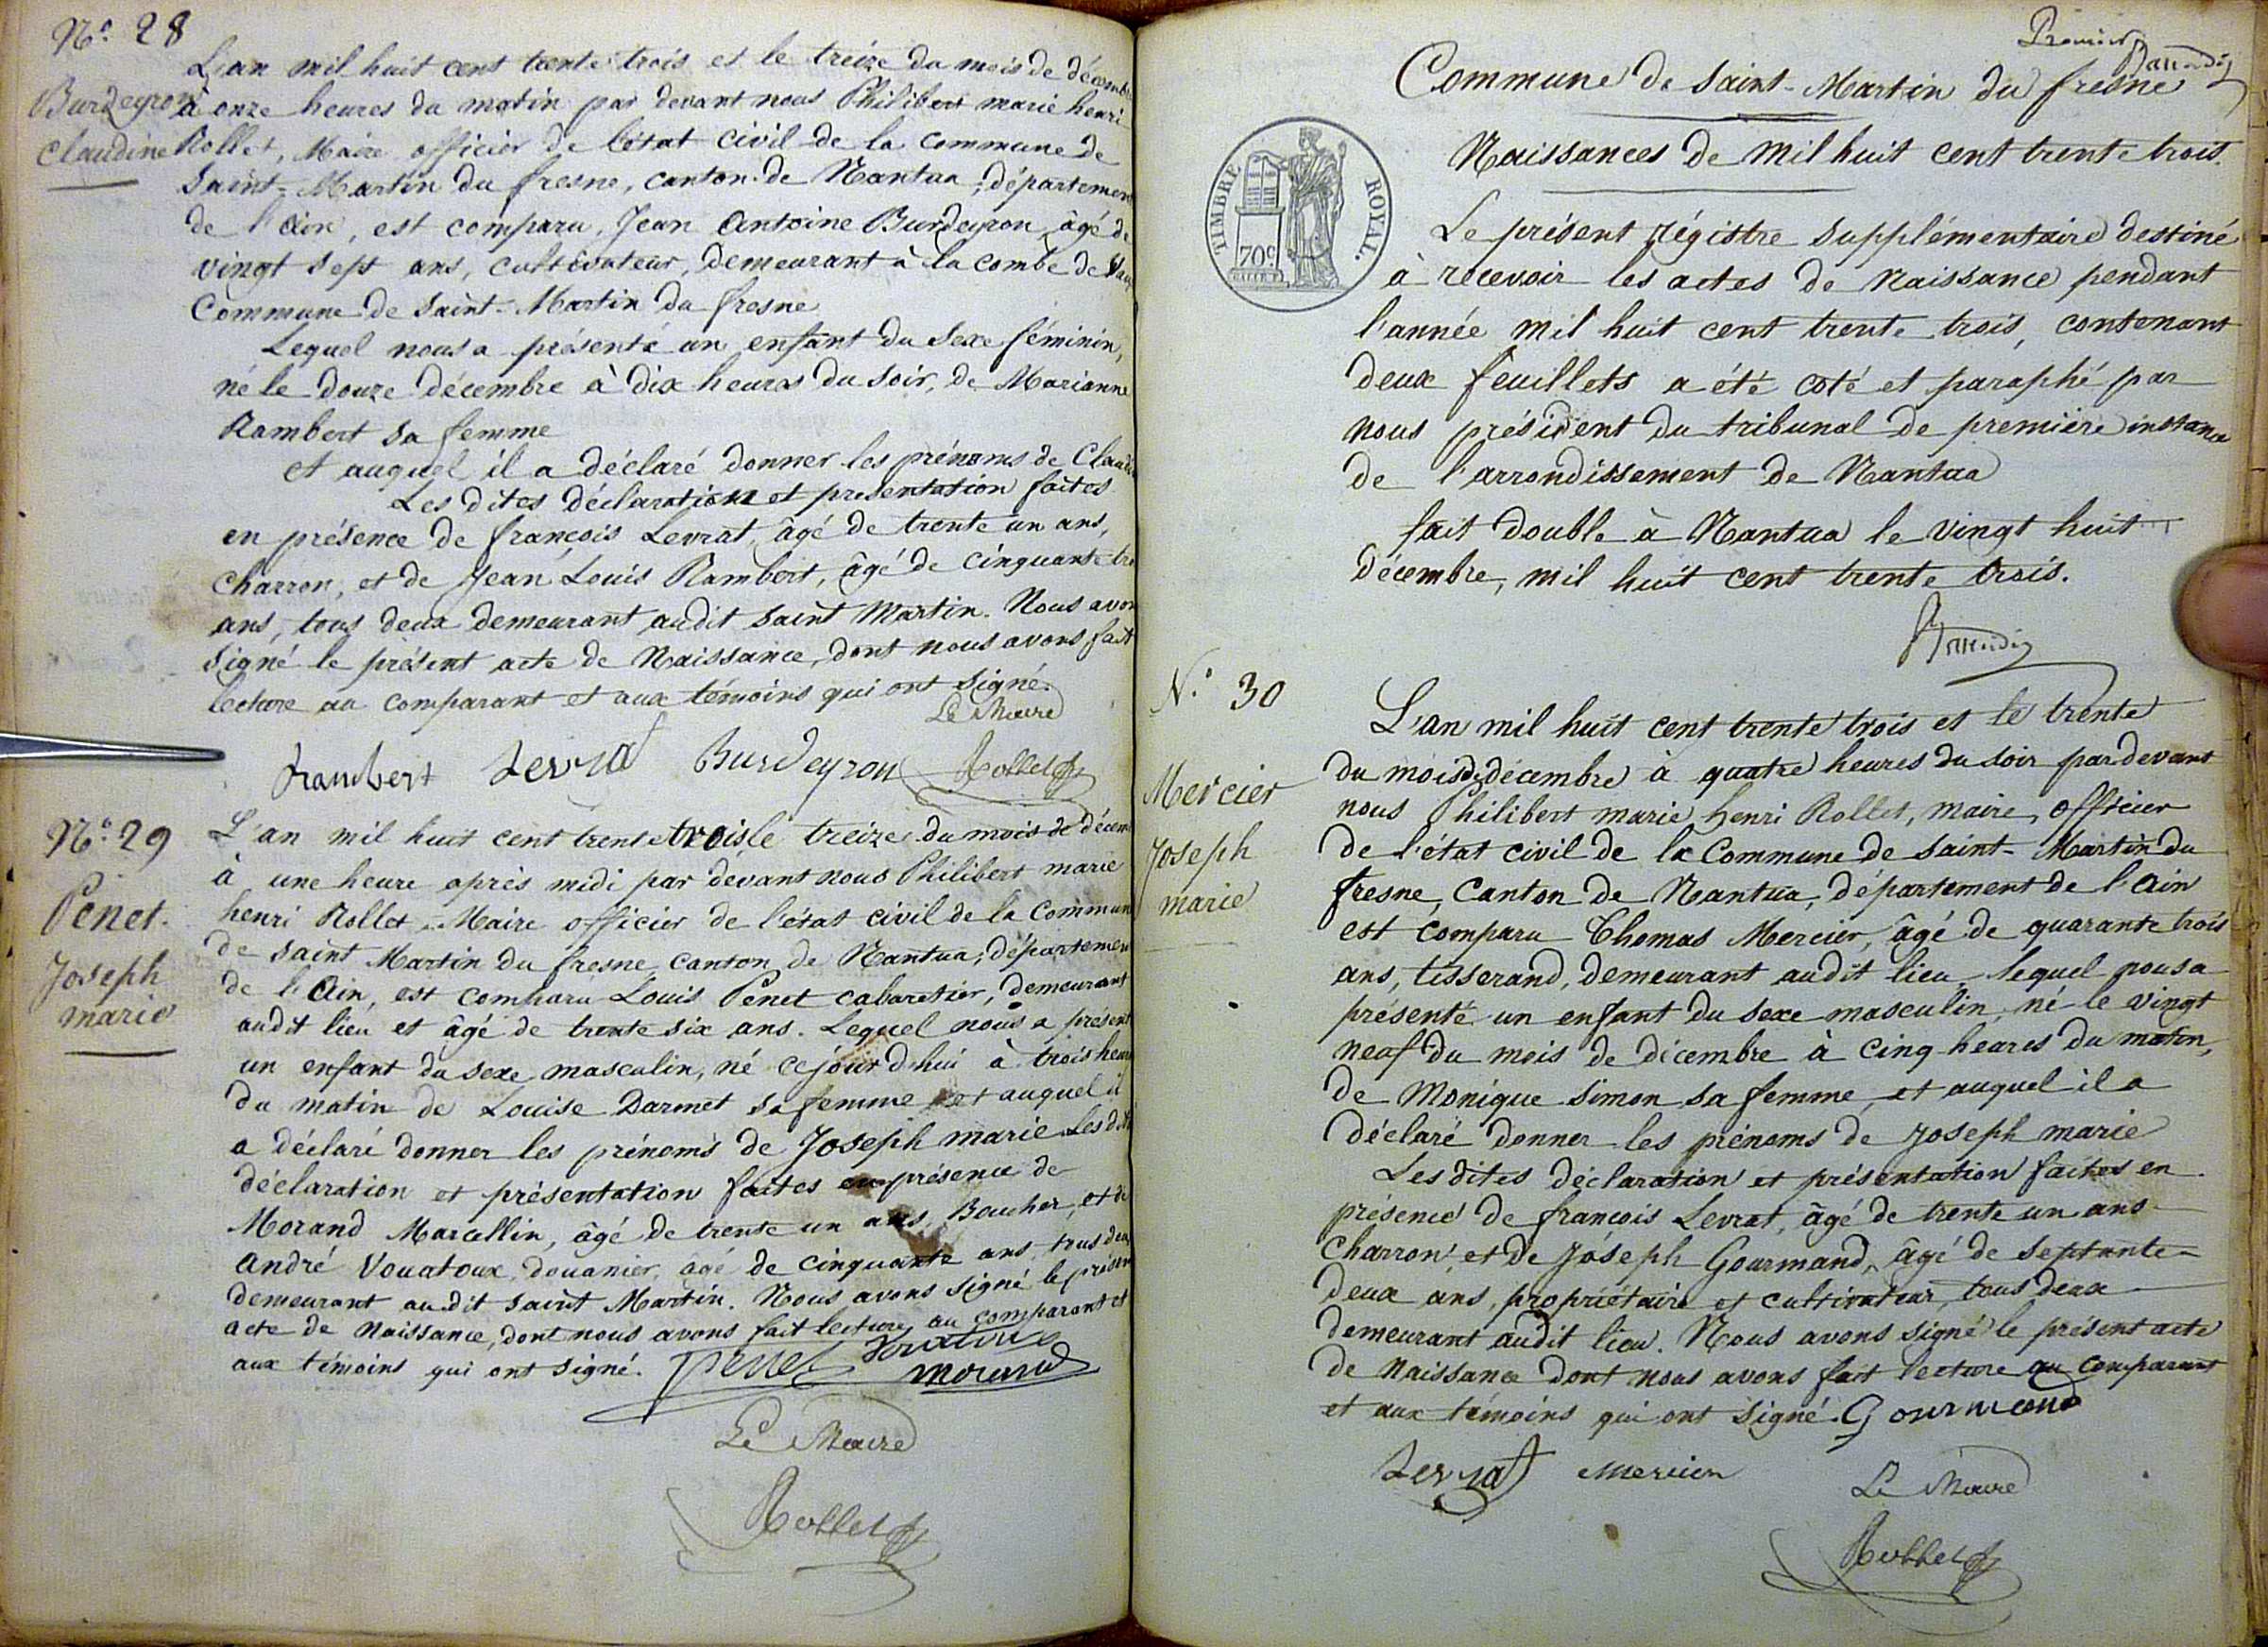 N.° 28
Burdeyron
Claudine
L'an mil huit cent trente trois et le treize du mois de décembre
à onze heures du matin par devant nous Philibert marie henri
Rollet, Maire officier de l'état civil de la Commune de
Saint-Martin du fresne, canton de Nantua, département
de l'Ain, est comparu, Jean Antoine Burdeyron, âgé de
vingt sept ans, cultivateur, demeurant à la combe de
Commune de Saint-Martin du fresne
Lequel nous a présenté un enfant du Sexe féminin,
né le douze décembre à dix heures du soir, de Marianne
Rambert sa femme
et auquel il a déclaré donner les prénoms de Claudine
Les dites déclaration et presentation faites
en présence de françois Levrat, âgé de trente un ans,
Charron, et de Jean Louis Rambert, âgé de cinquante tro
ans, tous deux demeurant audit saint Martin. Nous avons
signé le présent acte de Naissance, dont nous avons fait
lecture au comparant et aux témoins qui ont signé.
Le Maire
Rambert Levrat Burdeyron Rollet
N.° 29
Penet.
Joseph
marie
L'an mil huit cent trente trois le treize du mois de décem
à une heure après midi par devant nous Philibert marie
henri Rollet, Maire officier de l'état civil de la Commune
de saint Martin du fresne, canton de Nantua, département
de l'Ain, est comparu Louis Penet cabaretier, demeurant
audit lieu et âgé de trente six ans. Lequel nous a présent
un enfant du sexe masculin, né cejourd'hui à trois heures
du matin de Louise Darmet sa femme et auquel il
a déclaré donner les prénoms de Joseph marie Les dit
déclaration et présentation faites en présence de
Morand Marcellin, âgé de trente un ans, Boucher, et de
André Vouatoux, douanier, âgé de cinquante ans, tous deux
demeurant audit saint Martin. Nous avons signé le présent
acte de Naissance, dont nous avons fait lecture au comparant et
aux témoins qui ont signé. Penet
morand
Le Maire
Rollet
Premier
Commune de Saint-Martin du fresne
Naissances de Mil huit cent trente trois.
TIMBRE ROYAL.
70c.
Le présent régistre supplémentaire destiné
à recevoir les actes de Naissance pendant
l'année mil huit cent trente trois, contenant
deux feuillets a été coté et paraphé par
nous président du tribunal de première instance
de l'arrondissement de Nantua
fait double à Nantua le vingt huit
Décembre, mil huit cent trente trois.
N.° 30
Mercier
Joseph
marie
L'an mil huit cent trente trois et le trente
du mois de décembre à quatre heures du soir pardevant
nous Philibert marie henri Rollet, maire, officier
de l'état civil de la Commune de saint-Martin du
fresne, Canton de Nantua, département de l'Ain
est comparu Thomas Mercier, âgé de quarante trois
ans, tisserand, demeurant audit lieu, lequel nous a
présenté un enfant du sexe masculin, né le vingt
neuf du mois de décembre à cinq heures du matin,
de Monique Simon sa femme, et auquel il a
déclaré donner les prénoms de Joseph marie
Les dites déclaration et présentation faites en
présence de françois Levrat, âgé de trente un ans
Charron, et de Joseph Gourmand, âgé de septante
deux ans, propriétaire et cultivateur, tous deux
demeurant audit lieu. Nous avons signé le présent acte
de Naissance dont nous avons fait lecture au comparant
et aux témoins qui ont signé. Gourmand
Levrat Mercier
Le Maire
Rollet